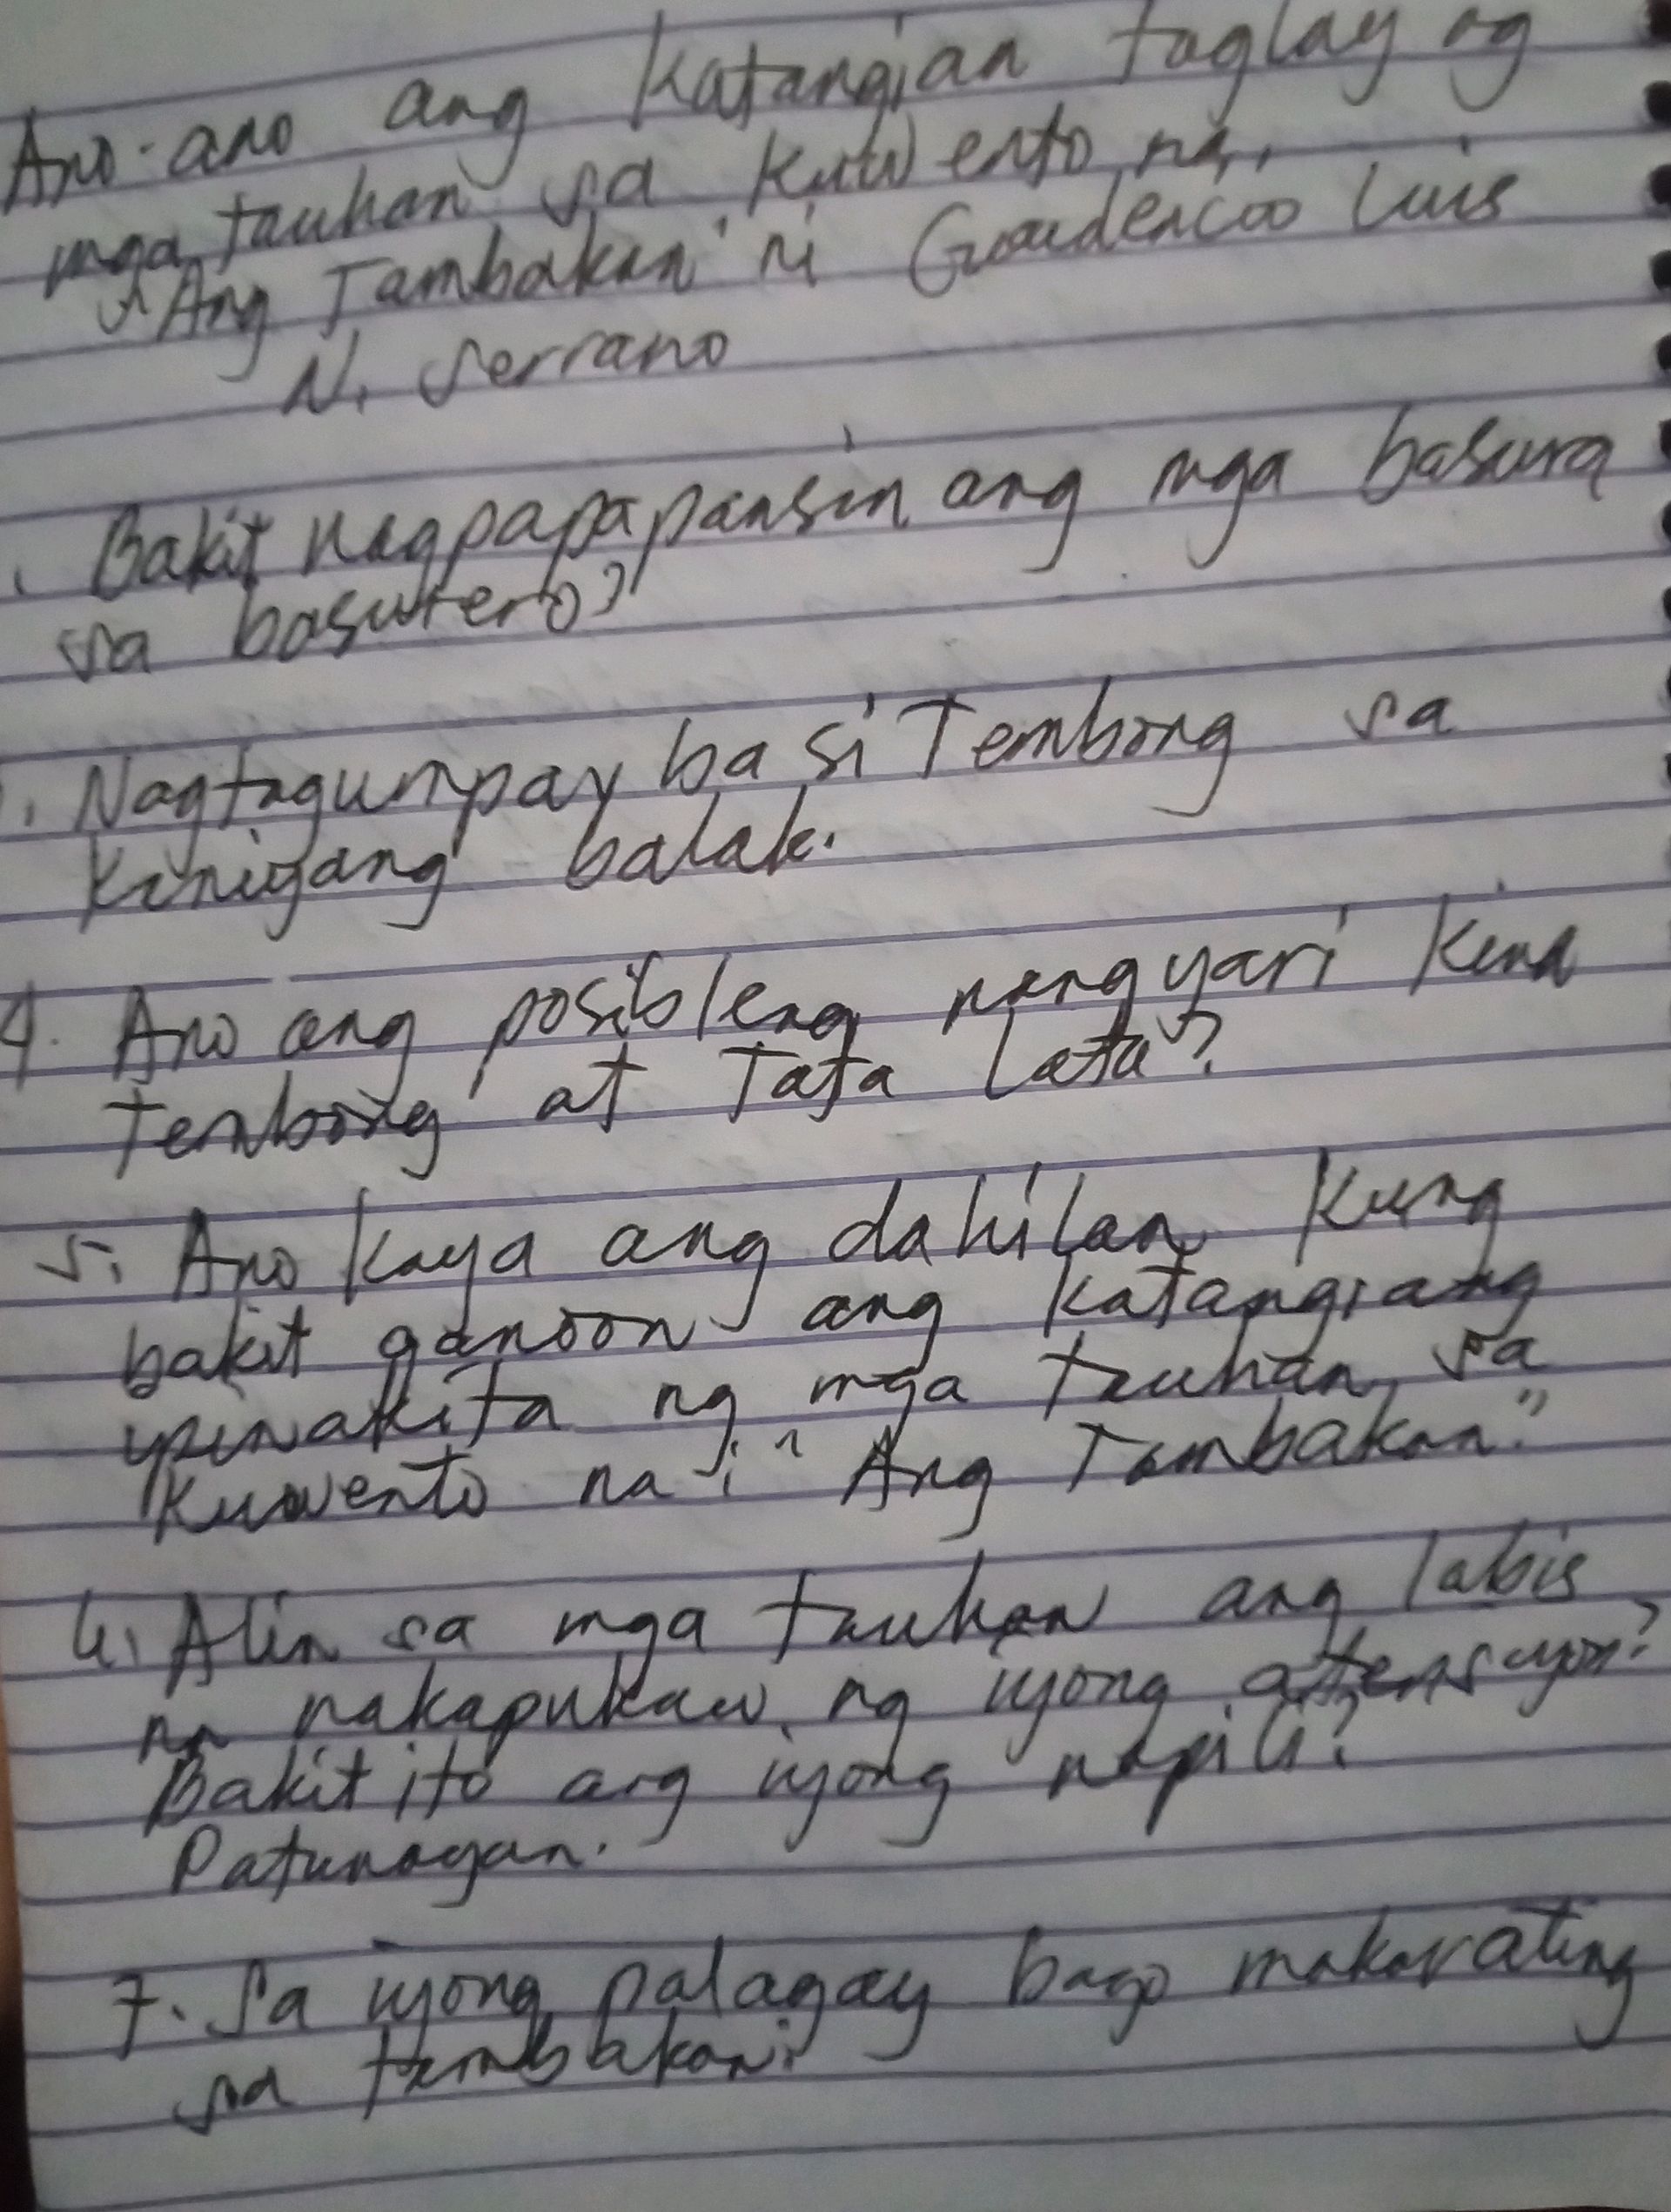 Ano-ano ang Katangian taglay ng
mga tauhan sa kuwento na,
"Ang Tambakan" ni Gaudencio Luis
N. Serrano
. Bakit nagpapapansin ang mga basura
sa basurero?
. Nagtagumpay ba si Tembong sa
kiniyang balak.
4. Ano ang posibleng nangyari kina
Tembong at Tata Lata?
5. Ano kaya ang dahilan kung
bakit ganoon ang katangiang
ipinakita ng mga tauhan sa
Kuwento na: "Ang Tambakan."
6. Alin sa mga tauhan ang labis
na nakapukaw ng iyong atensiyon?
Bakit ito ang iyong napili?
Patunayan.
7. Sa iyong palagay bago makarating
sa tambakan: